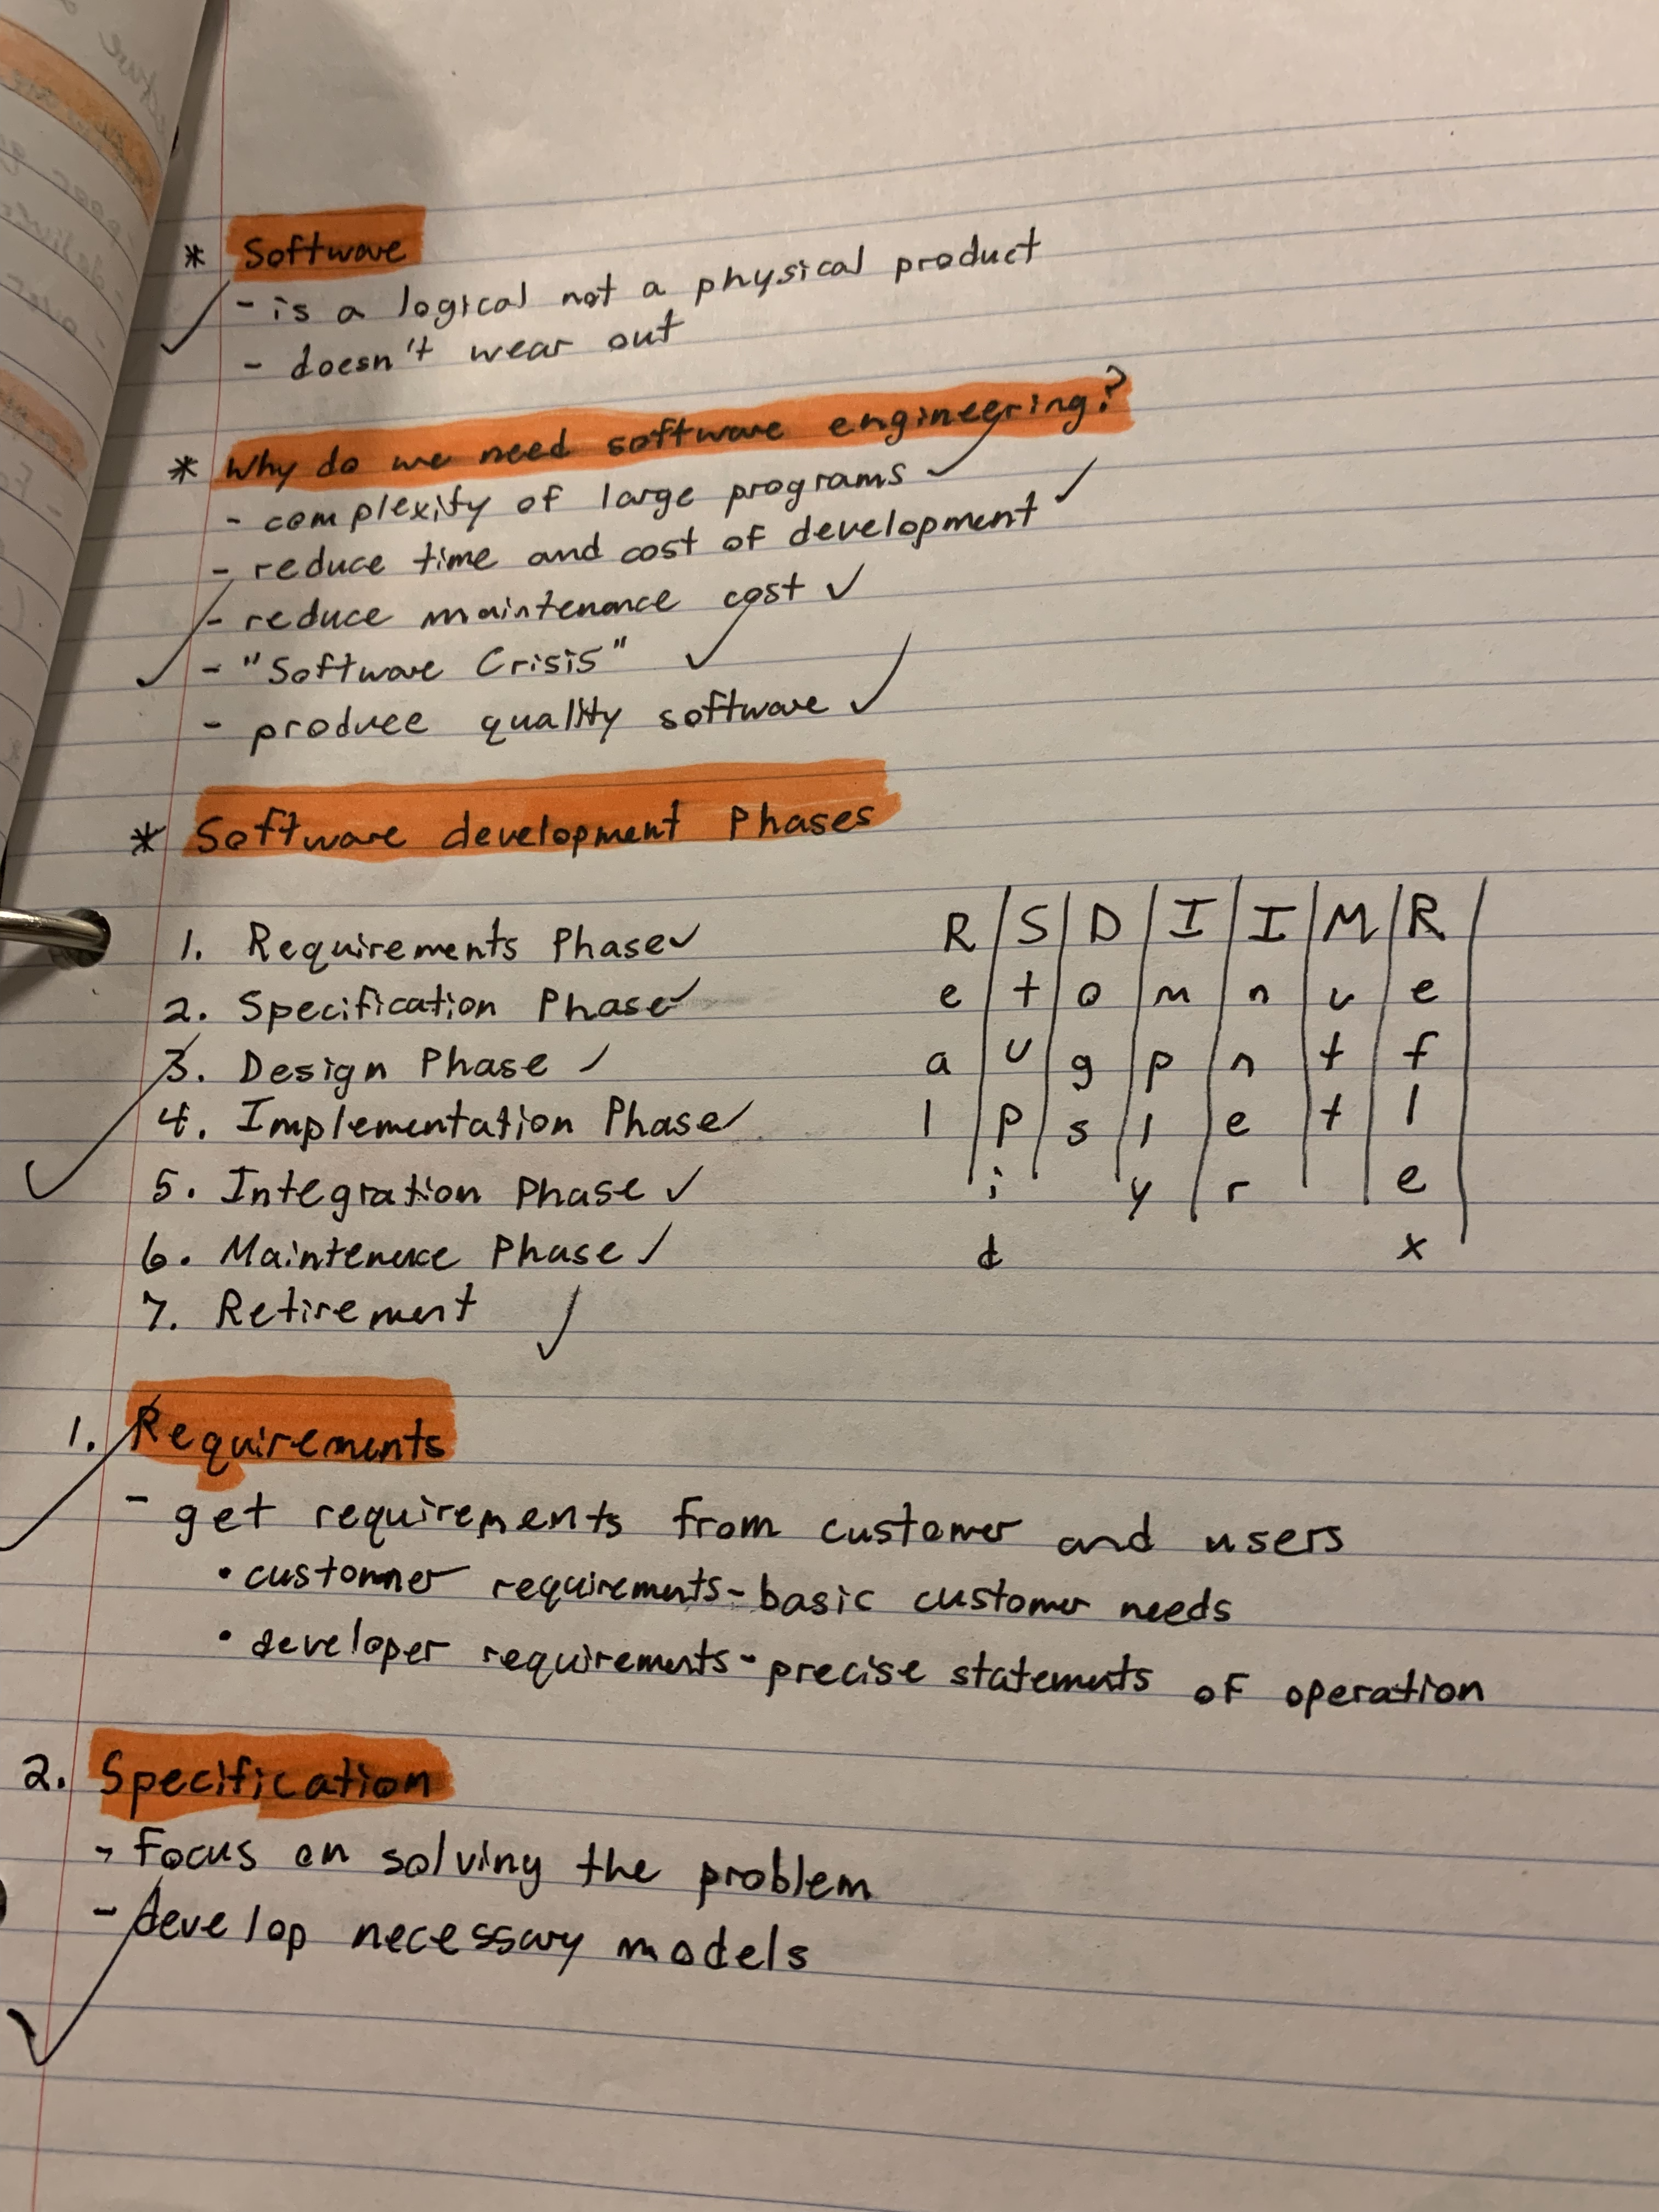 * Software
- is a logical not a physical product
- doesn't wear out
* Why do we need software engineering?
- complexity of large programs ✓
- reduce time and cost of development ✓
- reduce maintenance cost ✓
- "Software Crisis" ✓
- produce quality software ✓
* Software development Phases
1. Requirements Phase ✓
2. Specification Phase ✓
3. Design Phase ✓
4. Implementation Phase ✓
5. Integration Phase ✓
6. Maintenance Phase ✓
7. Retirement ✓
R | S | D | I | I | M | R |
e | t | o | m | n | u | e
a | u | g | p | n | t | f
l | p | s | l | e | t | l
i y | r | e
d x
1. Requirements
- get requirements from customer and users
• customer requirements - basic customer needs
• developer requirements - precise statements of operation
2. Specification
- Focus on solving the problem
- develop necessary models